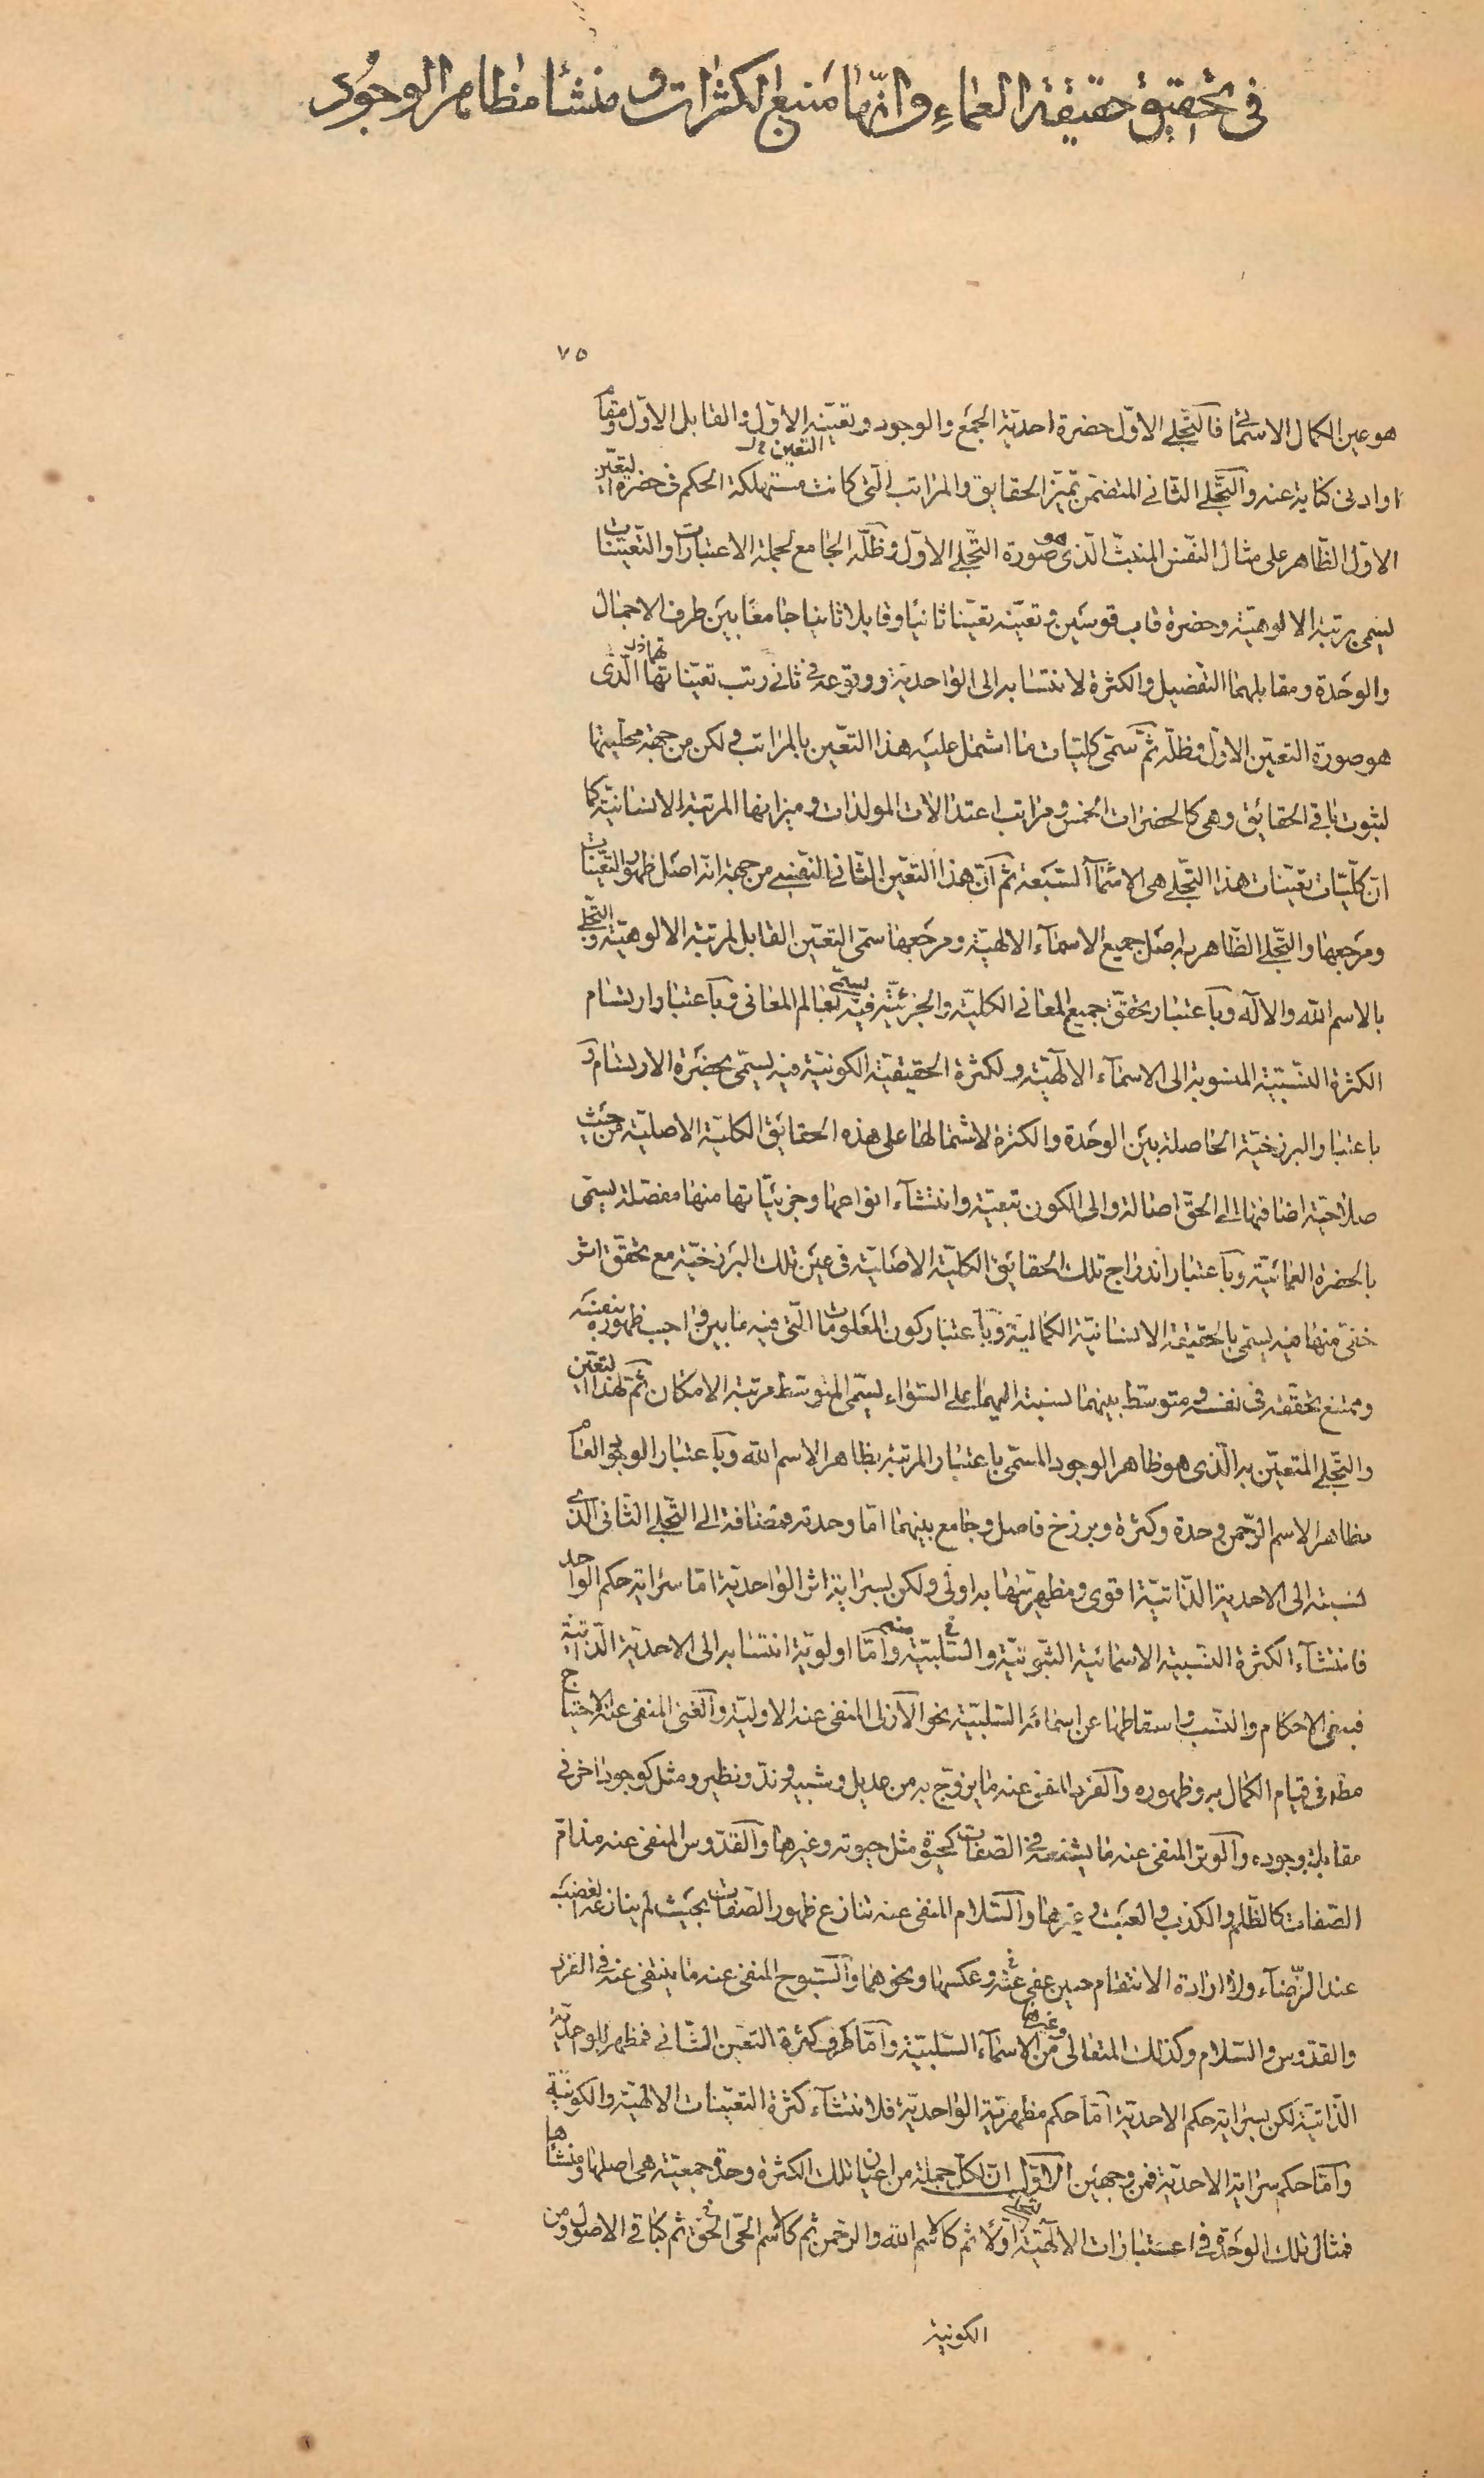 في تحقيق حقيقة العماء وانها منبع الكثرات و منشأ مظاهر الوجود
٧٥
هو عين الكمال الاسمائى فالتجلى الاول حضرة احدية الجمع والوجود وتعينه الاول والقابل الاول ومقام
التعين
او ادنى كناية عنه والتجلى الثانى المتضمن تميز الحقايق والمراتب التى كانت مستهلكة الحكم فى حضرة التعين
الاول الظاهر على مثال النفس المنبث الذى هو صورة التجلى الاول وظله الجامع لجملة الاعتبارات والتعينات
يسمى مرتبة الالوهية وحضرة قاب قوسين وتعينه تعينا ثانيا وقابلا ثانيا جامعا بين طرف الاجمال
والوحدة ومقابلهما التفصيل والكثرة لانتسابه الى الواحدية ووقوعه فى ثانى رتب تعيناتها الذى
هو صورة التعين الاول وظله ثم سمى كليات ما اشتمل عليه هذا التعين بالمراتب ولكن من جهة محليتها
لثبوت باقى الحقائق وهى كالحضرات الخمس ومراتب اعتدالات المولدات وميزانها المرتبة الانسانية كما
ان كليات تعينات هذا التجلى هى الاسماء السبعة ثم ان هذا التعين الثانى النفسى من جهة انه اصل ظهور التعينات
ومرجعها والتجلى الظاهر به اصل جميع الاسماء الالهية ومرجعها سمى التعين القابل لمرتبة الالوهية والتجلى
بالاسم الله والاله وباعتبار تحقق جميع المعانى الكلية والجزئية فيه يسمى بعالم المعانى وباعتبار ارتسام
الكثرة النسبية المنسوبة الى الاسماء الالهية ولكثرة الحقيقية الكونية فيه يسمى بحضرة الارتسام و
باعتبار البرزخية الحاصلة بين الوحدة والكثرة لاشتمالها على هذه الحقائق الكلية الاصلية من حيث
صلاحية اضافتها الى الحق اصالة والى الكون تبعية وانتشاء انواعها وجزئياتها منها مفصلة يسمى
بالحضرة العمائية وباعتبار اندراج تلك الحقائق الكلية الاصلية فى عين تلك البرزخية مع تحقق اثر
خفى منها فيه يسمى بالحقيقة الانسانية الكمالية وباعتبار كون المعلومات التى فيه ما بين واجب ظهوره بنفسه
وممتنع تحققه فى نفسه ومتوسط بينهما نسبة اليهما على السواء يسمى المتوسط مرتبة الامكان ثم لهذا التعين
والتجلى المتعين به الذى هو ظاهر الوجود المسمى باعتبار المرتبة بظاهر الاسم الله وباعتبار الوجود العام
بظاهر الاسم الرحمن وحدة وكثرة وبرزخ فاصل وجامع بينهما اما وحدته فمضافة الى التجلى الثانى الذى
نسبته الى الاحدية الذاتية اقوى ومظهريتها به اولى ولكن بسراية اثر الواحدية اما سراية حكم الواحد
فانتشاء الكثرة النسبية الاسمائية الثبوتية والسلبية منه واما اولوية انتسابه الى الاحدية الذاتية
فبنفى الاحكام والنسب واسقاطها عن اسمائه السلبية نحو الازلى المنفى عنه الاولية والغنى المنفى عنه الاحتياج
مطلقا فى قيام الكمال به وظهوره والفرد المنفى عنه ما يزوج به من عديل وشبيه وند ونظير ومثل كوجود آخر فى
مقابلة وجوده والوتر المنفى عنه ما يشفعه فى الصفات كحيوة مثل حيوته وغيرها والقدوس المنفى عنه مذام
الصفات كالظلم والكذب والعبث وغيرها والسلام المنفى عنه تنازع ظهور الصفات بحيث لم ينازعه لغضبه
عند الرضاء ولا ارادة الانتقام حين عفى عنه وعكسها ونحوهما والسبوح المنفى عنه ما ينتفى عنه فى الفرد
والقدوس والسلام وكذلك المتعالى وغيرها من الاسماء السلبية واما طرف كثرة التعين الثانى فمظهر للواحدية
الذاتية لكن بسراية حكم الاحدية اما حكم مظهرية الواحدية فلانتشاء كثرة التعينات الالهية والكونية
واما حكم سراية الاحدية فمن وجهين الاول ان لكل جملة من اعيان تلك الكثرة وحدة جمعية هى اصلها ومنشأها
فمثال تلك الوحدة فى اعتبارات الالهية اولا ثم كالاسم الله والرحمن ثم كالاسم الحى الحق ثم كباقى الاصول ومن
الكونية